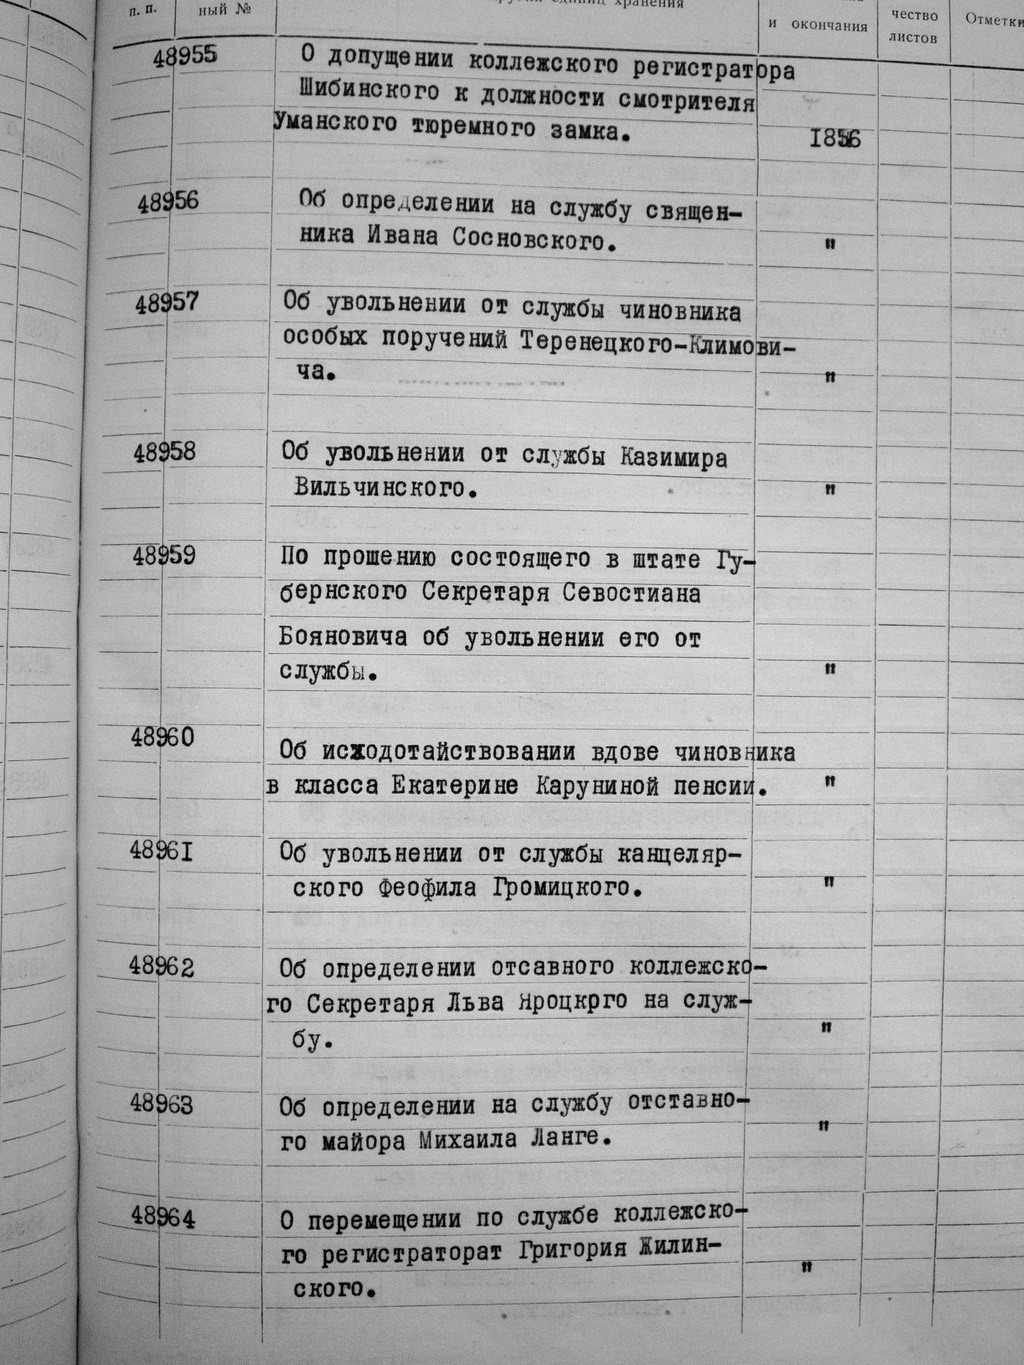 п. п.
ный №
единиц хранения
и окончания
чество
листов
Отметки
48955 О допущении коллежского регистратора
Шибинского к должности смотрителя
Уманского тюремного замка. 1856
48956 Об определении на службу священ-
ника Ивана Сосновского. "
48957 Об увольнении от службы чиновника
особых поручений Теренецкого-Климови-
ча. "
48958 Об увольнении от службы Казимира
Вильчинского. "
48959 По прошению состоящего в штате Гу-
бернского Секретаря Севостиана
Бояновича об увольнении его от
службы. "
48960 Об исходотайствовании вдове чиновника
в класса Екатерине Каруниной пенсии. "
48961 Об увольнении от службы канцеляр-
ского Феофила Громицкого. "
48962 Об определении отсавного коллежско-
го Секретаря Льва Яроцкрго на служ-
бу. "
48963 Об определении на службу отставно-
го майора Михаила Ланге. "
48964 О перемещении по службе коллежско-
го регистраторат Григория Жилин-
ского. "